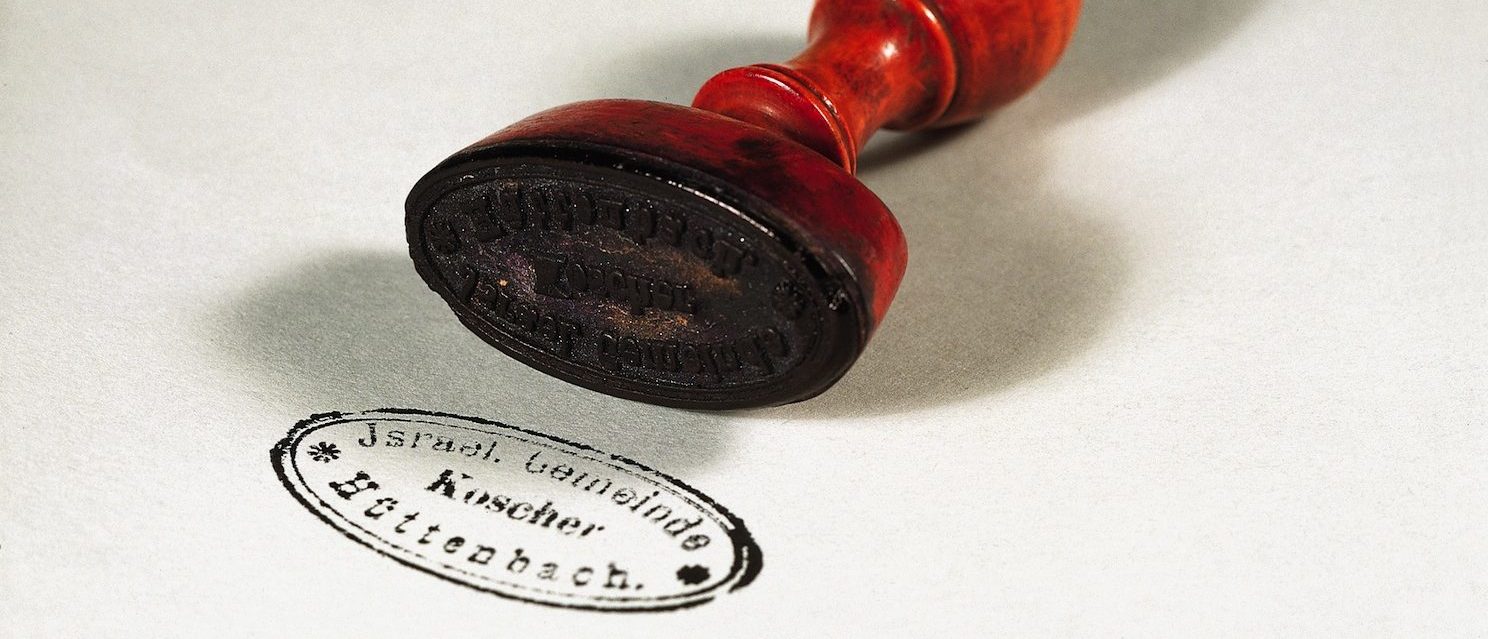 Jsrael. Gemeinde
Koscher
Hüttenbach.